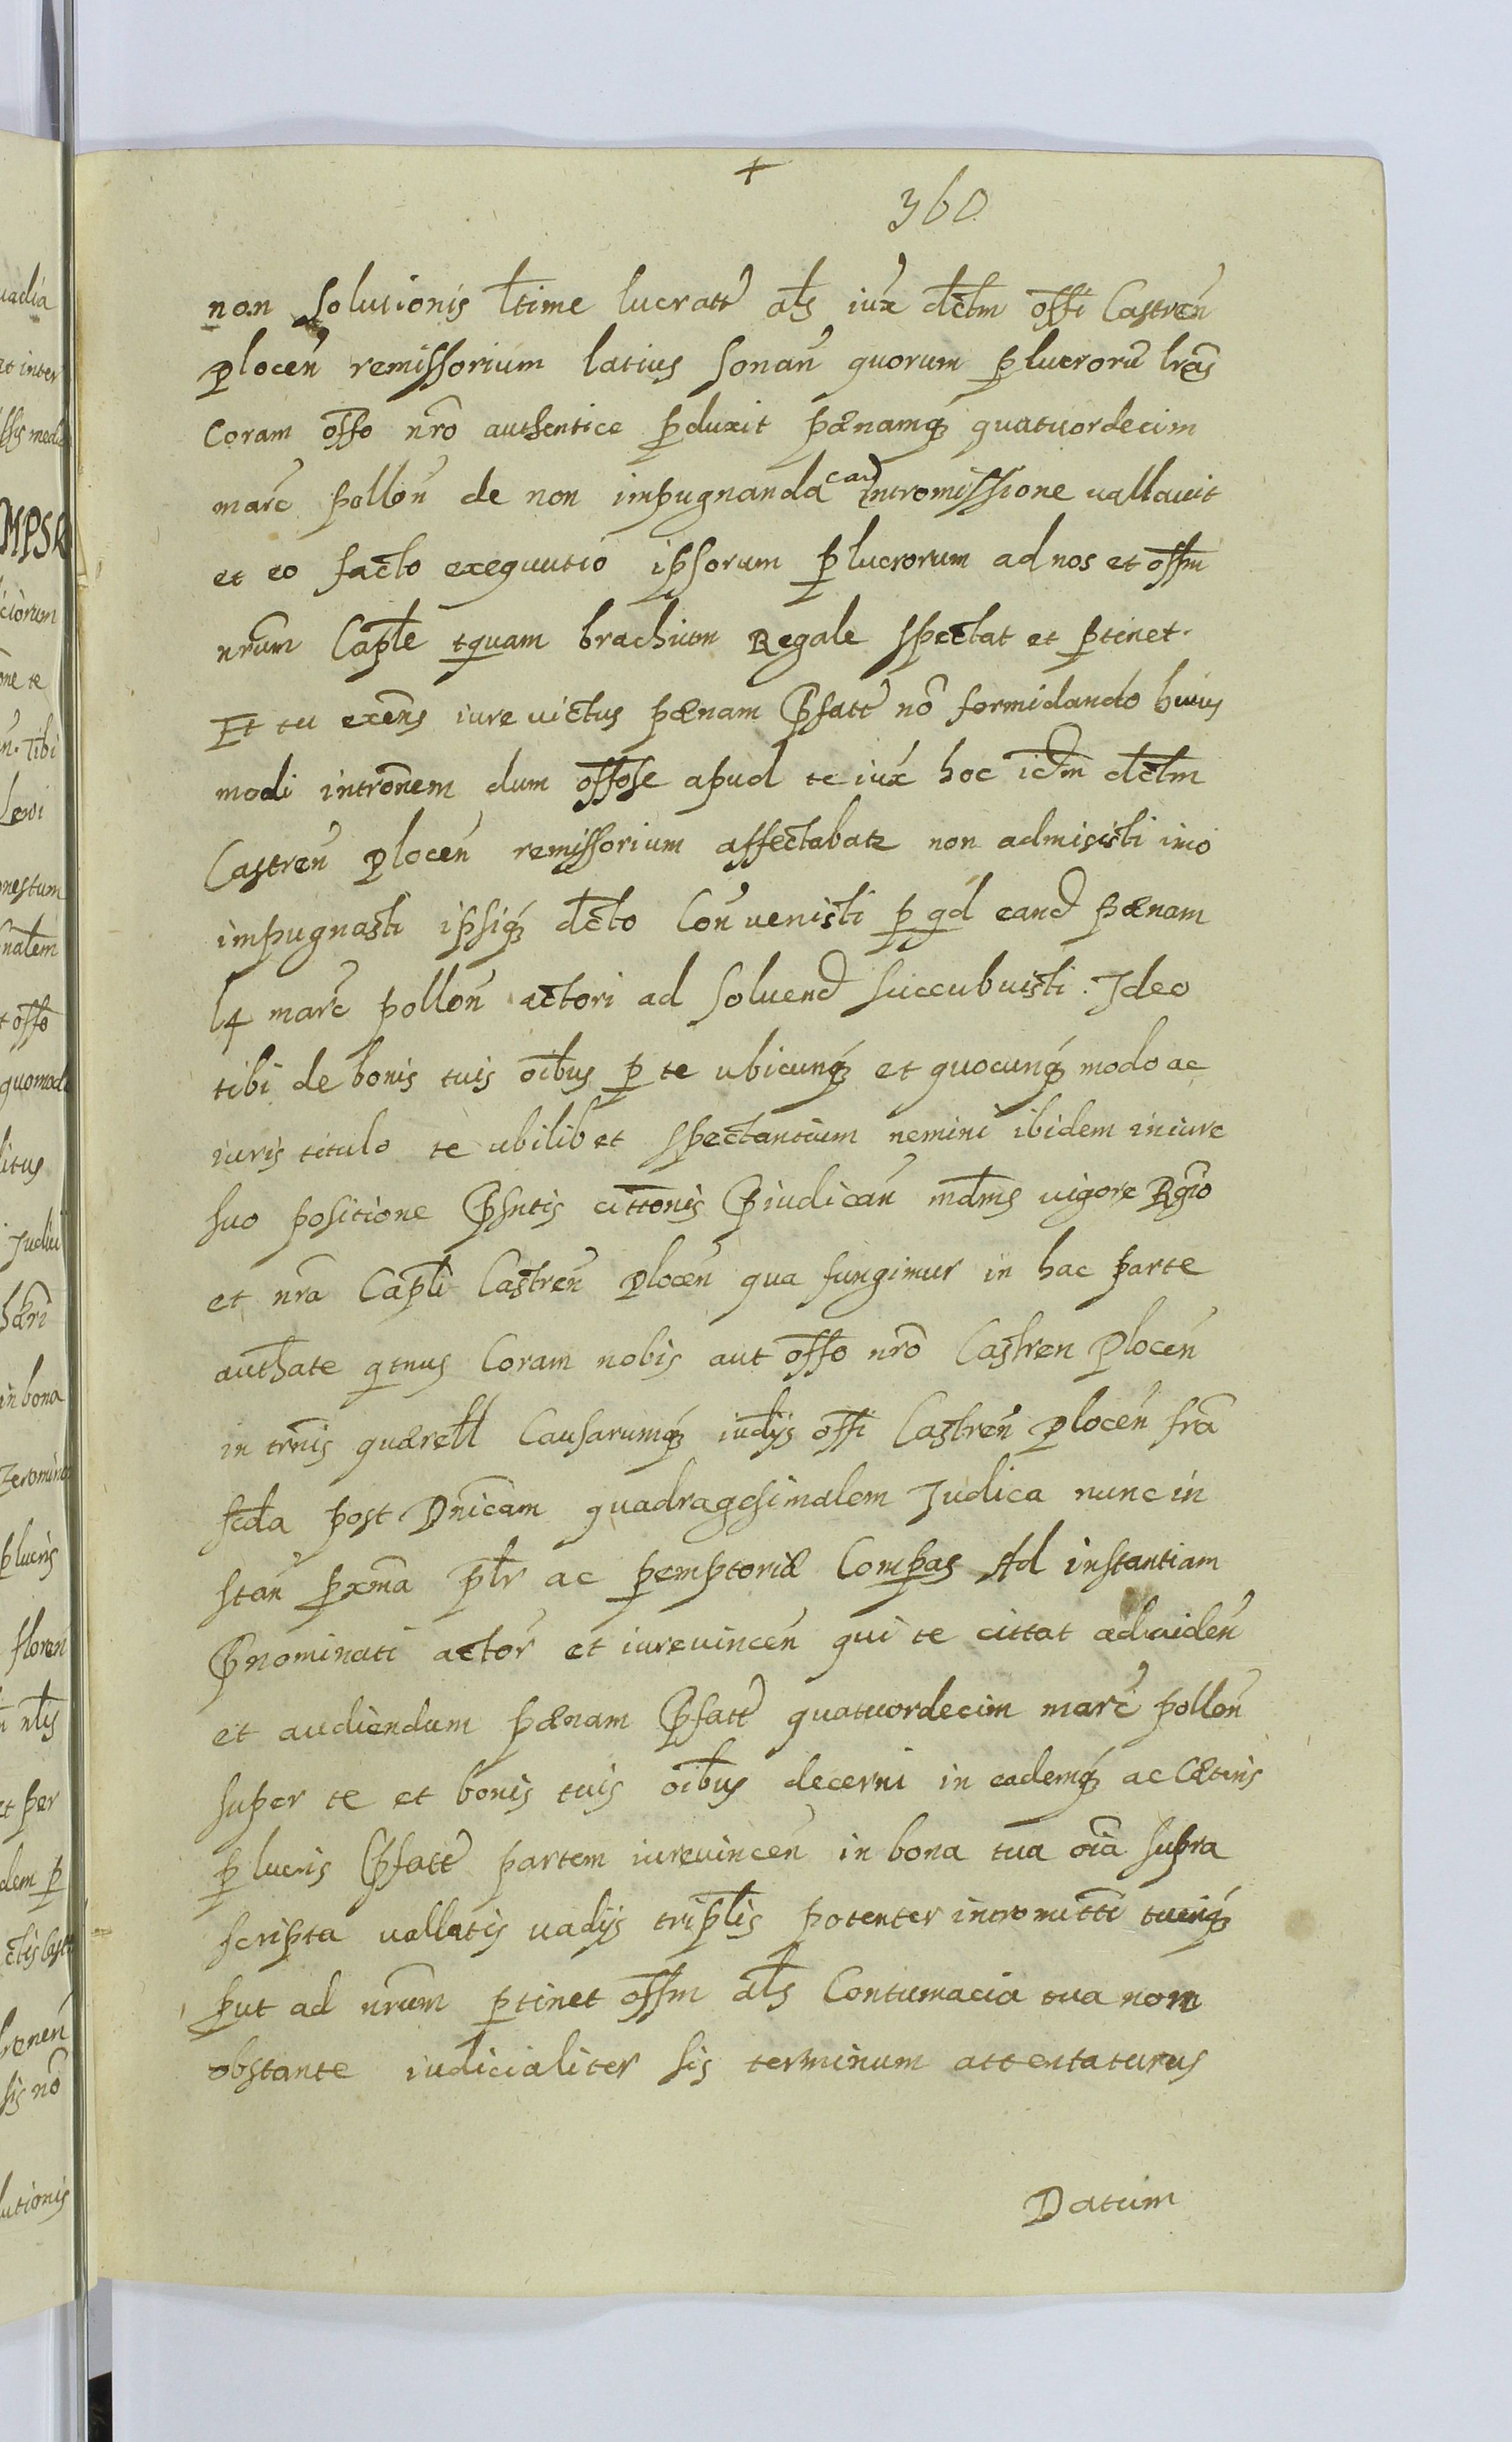 +
360
non solutionis ltime lucratt als iux dctm offi Castren
plocen remissorium latius sonan quorum plucroru lras
coram offo nro authentice pduxit pænamq quatuordecim
marc pollon de non impugnanda ead intromissione vallavit
et eo facto exequutio ipsorum plucrorum ad nos et offm
nrum Caple tquam brachium Regale spectat et ptinet.
Et tu exens iure victus pænam Pfatt no formidando huius
modi intronem dum offose apud te iux hoc idm dctm
Castren plocen remissorium affectabat non admisisti imo
impugnasti ipsiq dcto Con venisti p qd eand pænam
14 marc pollon actori ad soluend succubuisti. Ideo
tibi de bonis tuis oibus p te ubicunq et quocunq modo ac
iuris titulo te ubilibet spectantium nemini ibidem in iure
suo positione Psntis cittonis Piudican mdms vigore Rgio
et nra Capli Castren Plocen qua fungimur in hac parte
authate qtnus Coram nobis aut offo nro Castren Plocen
in trnis quærell Causarumq iudys offi Castren Plocen fra
scda post Dnicam quadragesimalem Judica nunc in
stan pxma plr ac pemptoriæ Compas Ad instantiam
Pnominati actor et iurevincen qui te cittat ad uiden
et audiendum pænam Pfatt quatuordecim marc pollon
super te et bonis tuis oibus decerni in eademq ac Cætris
plucris Pfatt partem iurevincen in bona tua oia supra
scripta vallatis vadijs triplis potenter intromitti tueriq
put ad nrum ptinet offm als Contumacia tua non
obstante iudicialiter sis terminum attentaturus
Datum